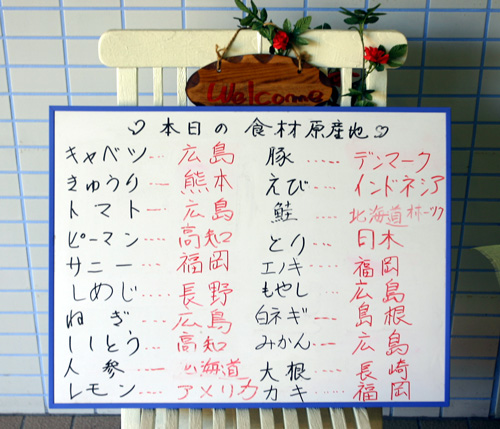 Welcome
本日の食材原産地
キャベツ・・・広島
きゅうり・・・熊本
トマト・・・広島
ピーマン・・・高知
サニー・・・福岡
しめじ・・・長野
ねぎ・・・広島
ししとう・・・高知
人参・・・北海道
レモン・・・アメリカ
豚・・・デンマーク
えび・・・インドネシア
鮭・・・北海道オホーツク
とり・・・日本
エノキ・・・福岡
もやし・・・広島
白ネギ・・・島根
みかん・・・広島
大根・・・長崎
カキ・・・福岡